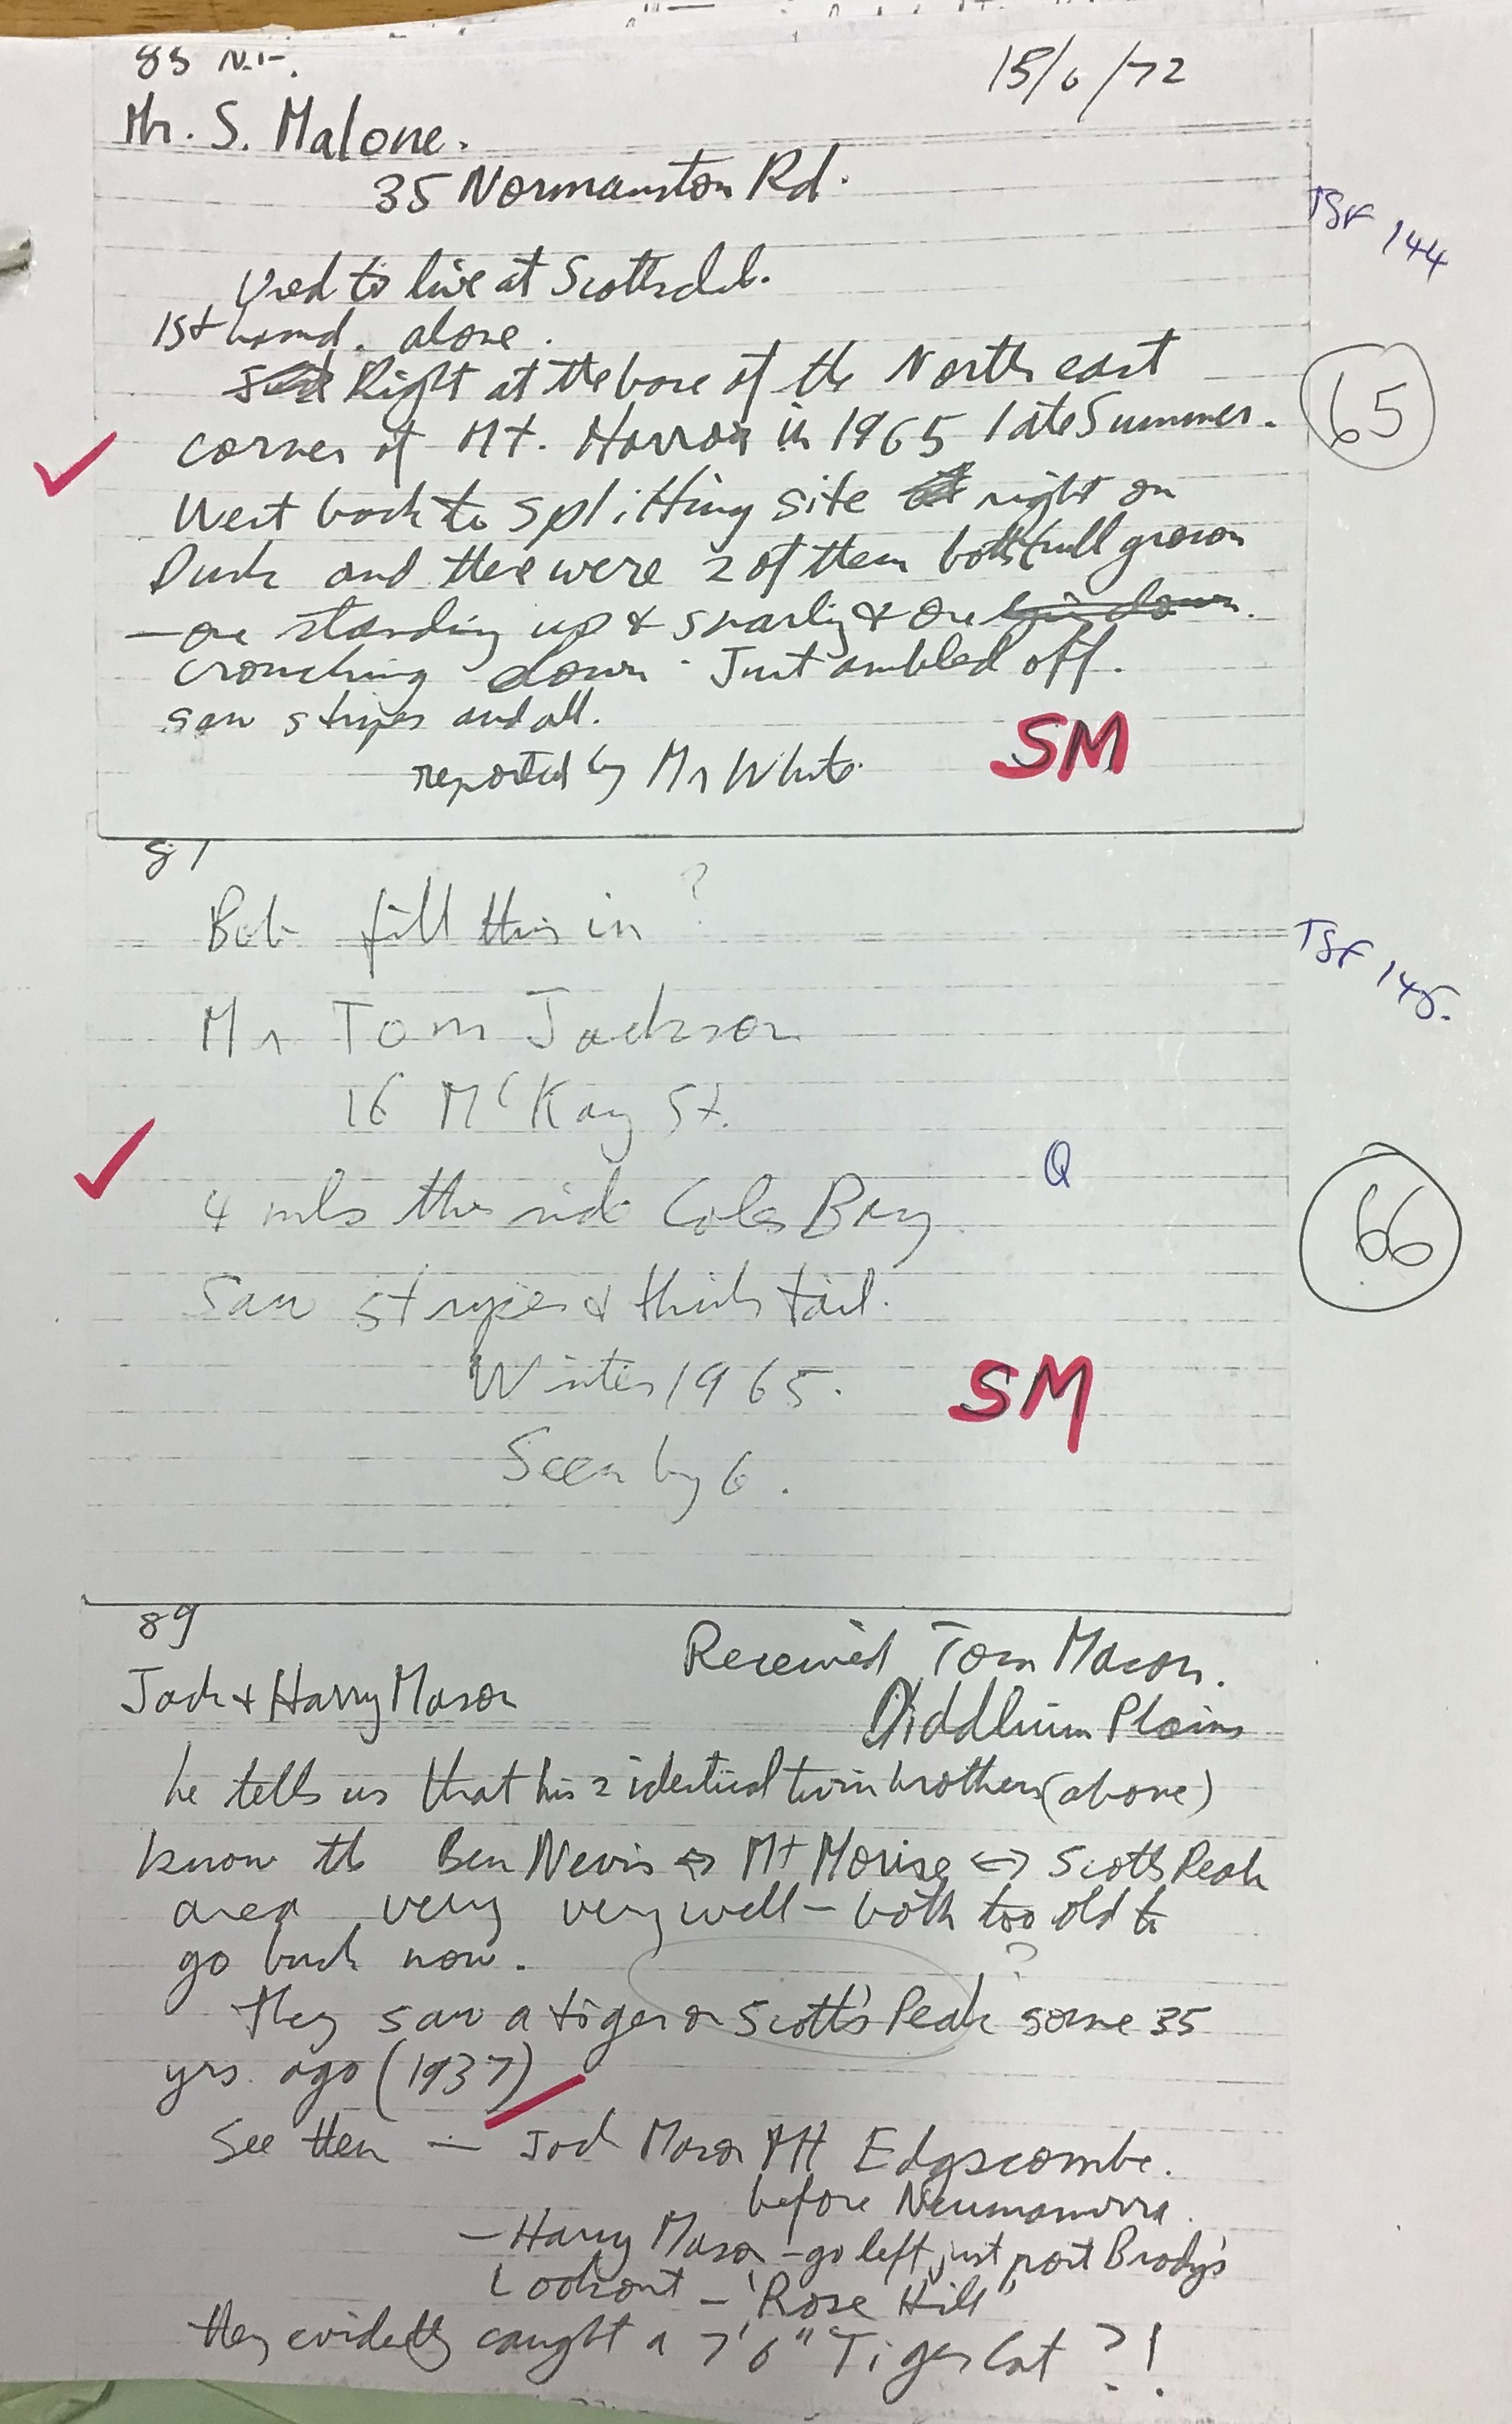 85 N.T.
15/6/72
Mr. S. Malone.
35 Normanston Rd.
TSF 144
Used to live at Scottsdale.
1st hand. alone.
Right at the base of the North east
65
corner of Mt. Horror in 1965 late Summer.
Went back to splitting site right on
Dusk and there were 2 of them both full grown
— one standing up & snarling & one lying down.
crouching down. Just ambled off.
saw stripes and all.
SM
reported by Mr White.
87
Bob fill this in?
TSF 145.
Mr Tom Jackson
16 McKay St.
Q
4 mls this side Coles Bay
66
Saw stripes & thick tail.
Winter 1965.
SM
Seen by 6.
89
Received Tom Mason.
Jack & Harry Mason
Diddleum Plains
he tells us that his 2 identical twin brothers (above)
know the Ben Nevis <-> Mt Morise <-> Scotts Peak
area very very well — both too old to
go back now.
?
They saw a tiger on Scott's Peak some 35
yrs. ago (1937)
See them — Jack Mason Mt Edgscombe.
before Neumanovra.
— Harry Mason - go left just past Brady's
Lookout — "Rose Hill"
they evidently caught a 7'6" Tiger Cat ?!